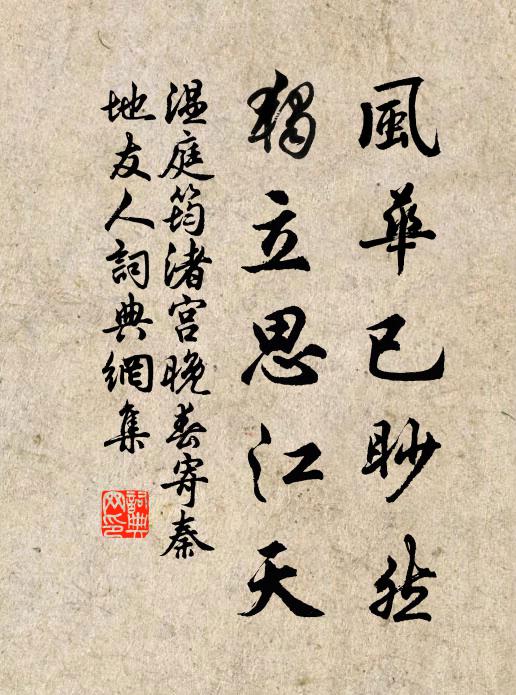 風華已眇然
獨立思江天
溫庭筠渚宮晚春寄秦
地友人詞典網集
詞典網印